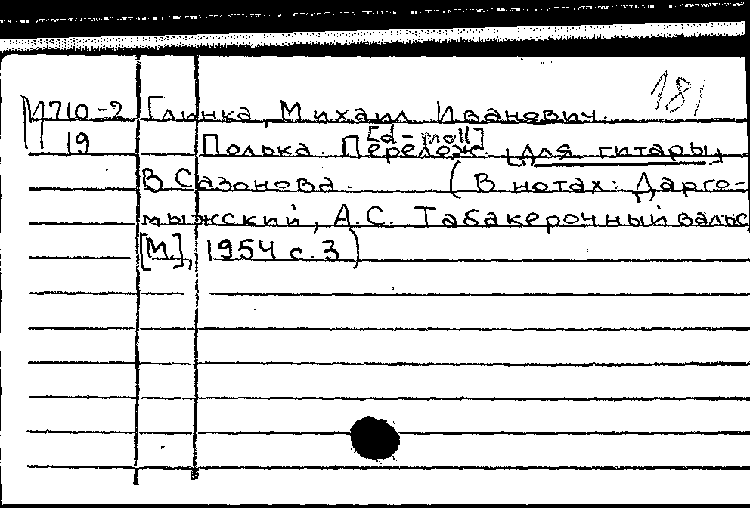 181
М710-2 Глинка, Михаил Иванович.
[d-moll]
19 Полька. Перелож. для гитары
В Сазонова. (В нотах: Дарго-
мыжский, А.С. Табакерочный вальс
[М.], 1954 с. 3)